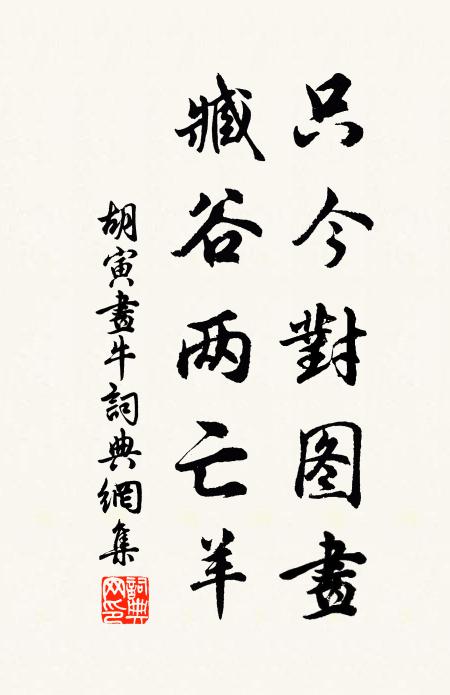 只今對图畫
臧谷两亡羊
胡寅畫牛詞典網集
詞典网印